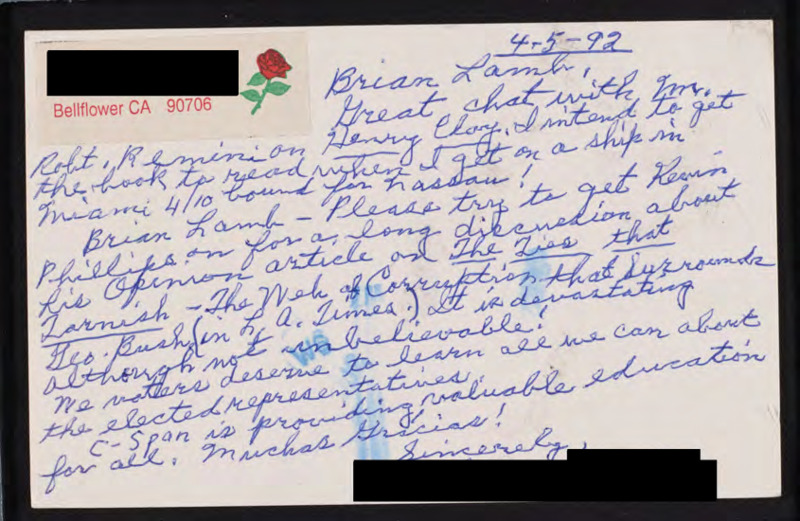 Bellflower CA 90706
4-5-92
Brian Lamb,
Great chat with Mr.
Robt. Remini on Henry Clay. I intend to get
the book to read when I get on a ship in
Miami 4/10 bound for Nassau!
Brian Lamb - Please try to get Kevin
Phillips on for a long discussion about
his Opinion article on The Ties that
Tarnish - The Web of Corruption that Surrounds
Geo. Bush (in L. A. Times.) It is devastating
although not unbelievable!
We voters deserve to learn all we can about
the elected representatives.
C-Span is providing valuable education
for all. Muchas Gracias!
Sincerely,